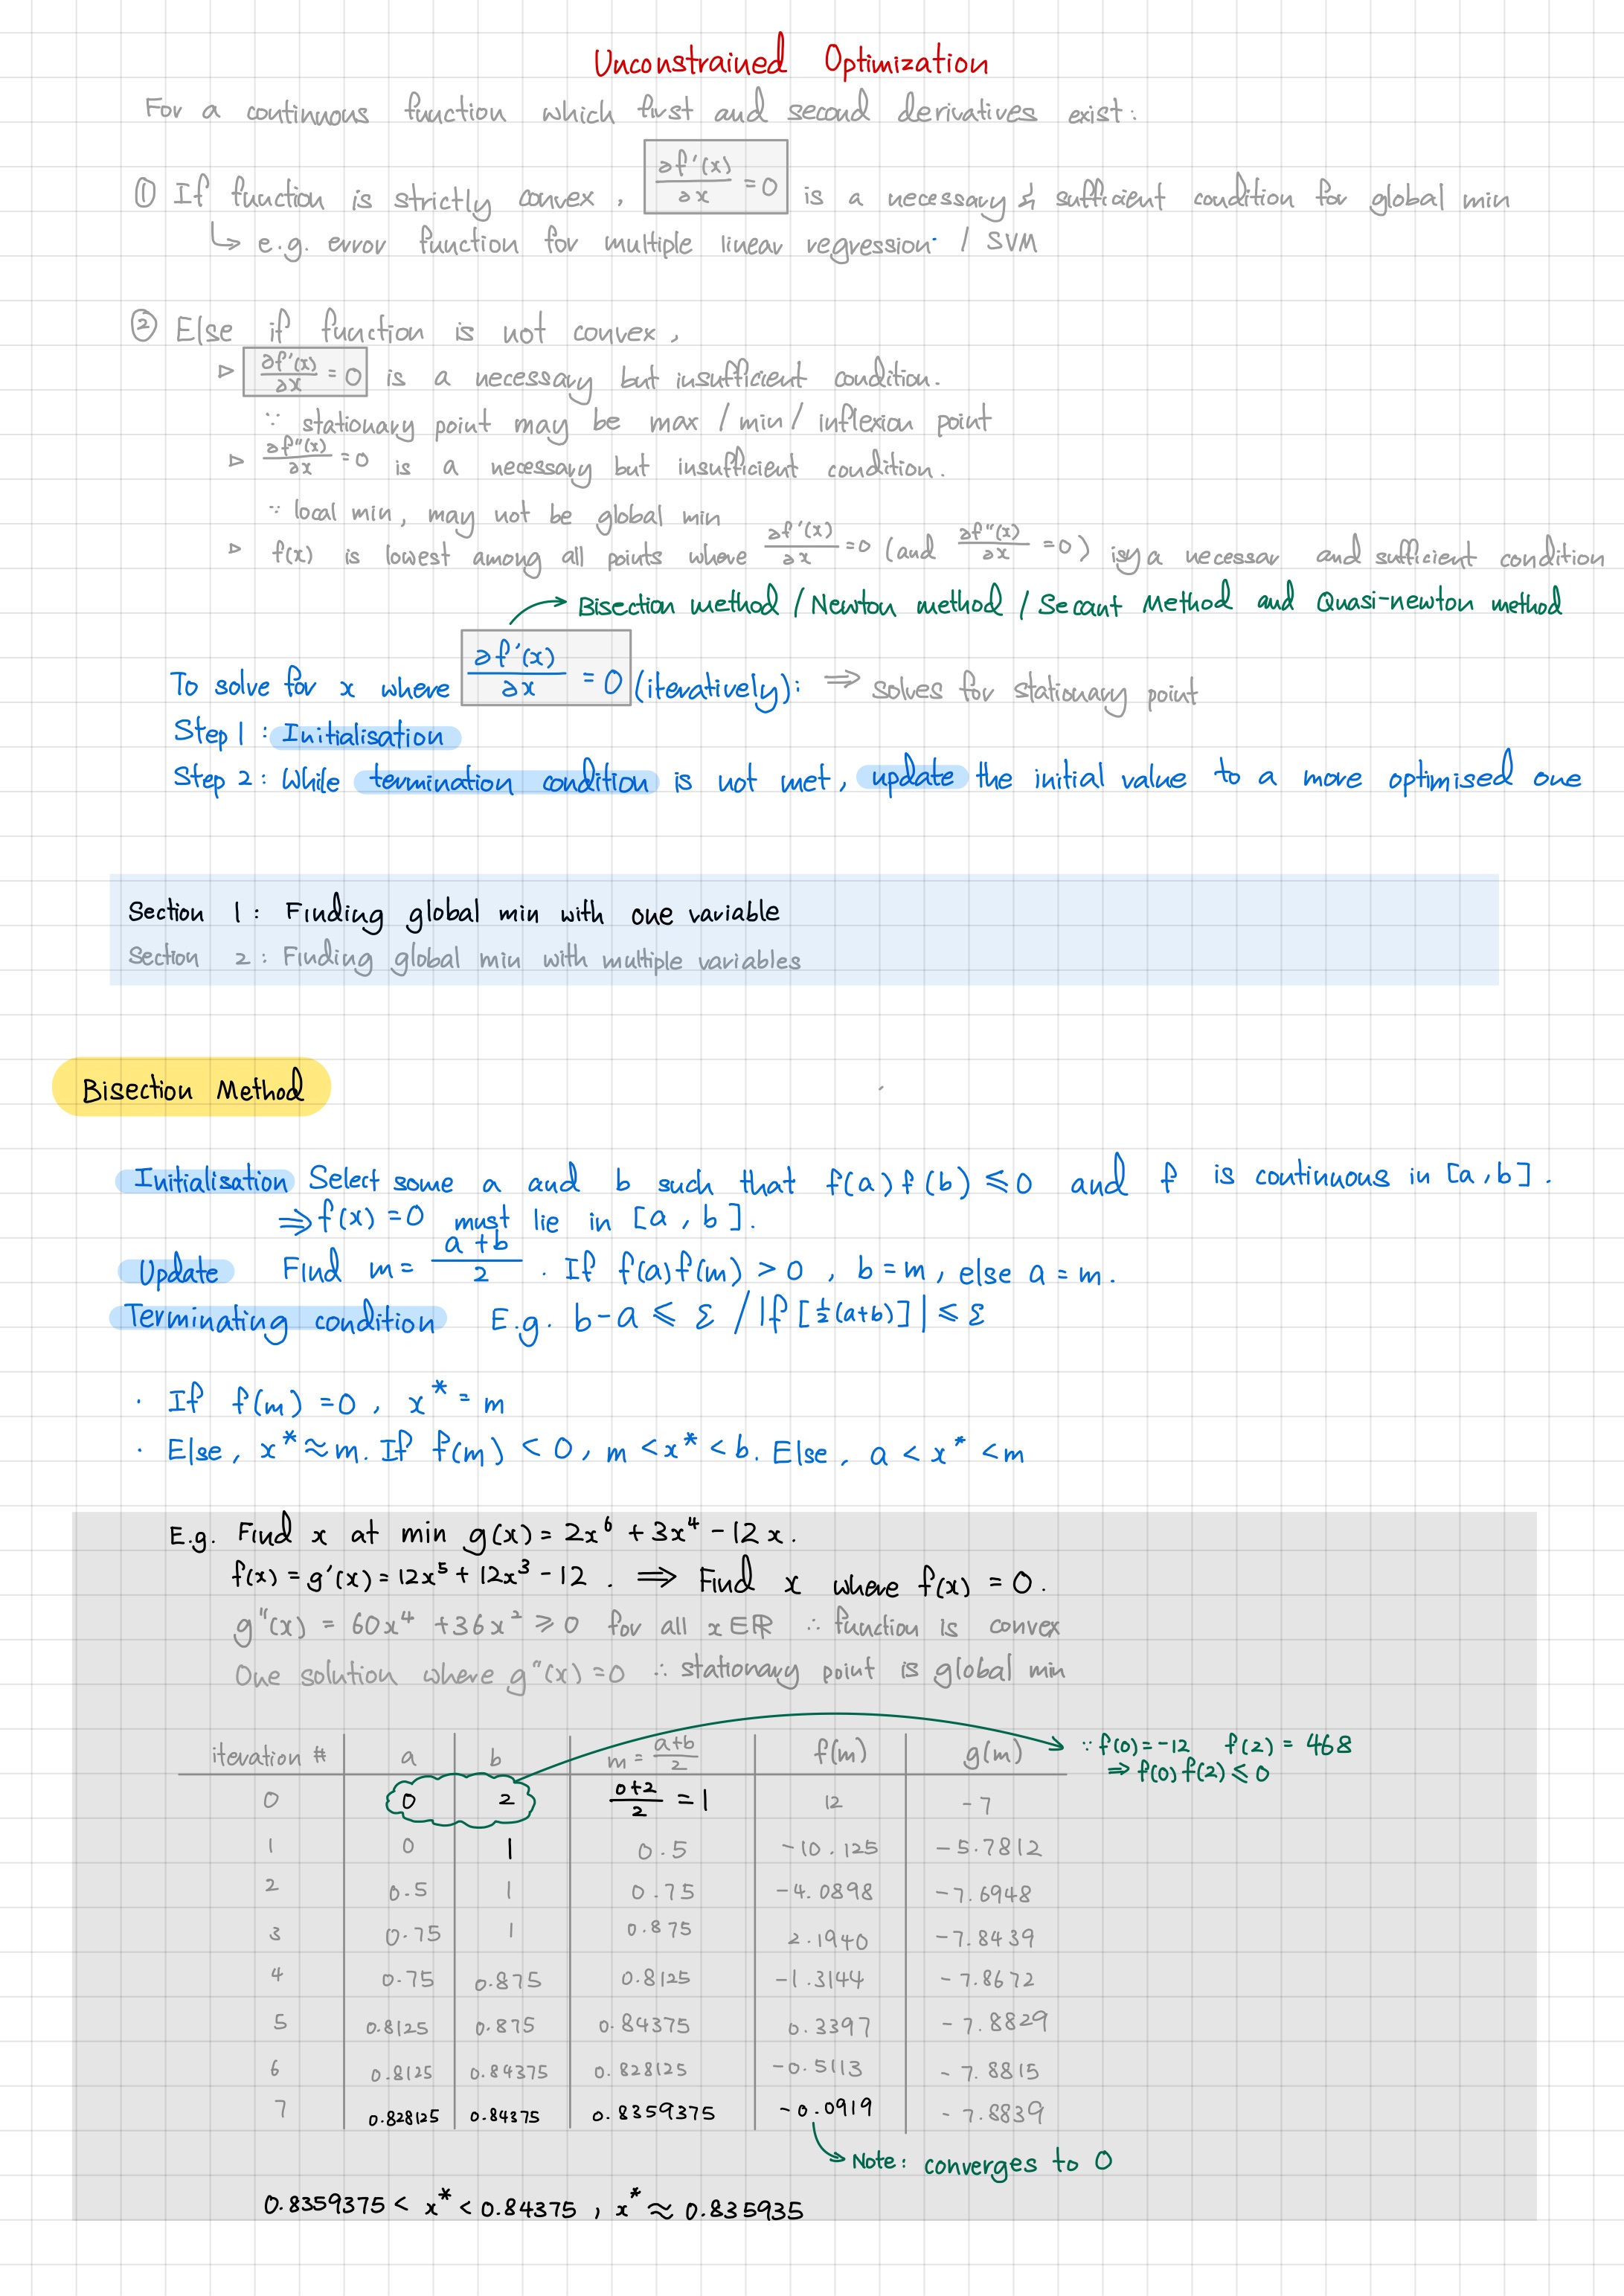 Unconstrained Optimization
For a continuous function which first and second derivatives exist:
① If function is strictly convex, ∂f'(x)/∂x = 0 is a necessary & sufficient condition for global min
↳ e.g. error function for multiple linear regression / SVM
② Else if function is not convex,
▷ ∂f'(x)/∂x = 0 is a necessary but insufficient condition.
∵ stationary point may be max / min / inflexion point
▷ ∂f"(x)/∂x = 0 is a necessary but insufficient condition.
∵ local min, may not be global min
▷ f(x) is lowest among all points where ∂f'(x)/∂x = 0 (and ∂f"(x)/∂x = 0) isy a necessar and sufficient condition
→ Bisection method / Newton method / Secant Method and Quasi-newton method
To solve for x where ∂f'(x)/∂x = 0 (iteratively): ⇒ solves for stationary point
Step 1: Initialisation
Step 2: While termination condition is not met, update the initial value to a more optimised one
Section 1: Finding global min with one variable
Section 2: Finding global min with multiple variables
Bisection Method
Initialisation Select some a and b such that f(a)f(b) ≤ 0 and f is continuous in [a,b].
⇒ f(x) = 0 must lie in [a, b].
Update Find m = (a+b)/2. If f(a)f(m) > 0, b = m, else a = m.
Terminating condition E.g. b-a ≤ ε / |f[½(a+b)]| ≤ ε
· If f(m) = 0, x* = m
· Else, x* ≈ m. If f(m) < 0, m < x* < b. Else, a < x* < m
E.g. Find x at min g(x) = 2x⁶ + 3x⁴ - 12x.
f(x) = g'(x) = 12x⁵ + 12x³ - 12. ⇒ Find x where f(x) = 0.
g"(x) = 60x⁴ + 36x² ≥ 0 for all x∈ℝ ∴ function is convex
One solution where g"(x) = 0 ∴ stationary point is global min
iteration # a b m = (a+b)/2 f(m) g(m) → ∵ f(0) = -12 f(2) = 468
⇒ f(0)f(2) ≤ 0
0 0 2 (0+2)/2 = 1 12 -7
1 0 1 0.5 -10.125 -5.7812
2 0.5 1 0.75 -4.0898 -7.6948
3 0.75 1 0.875 2.1940 -7.8439
4 0.75 0.875 0.8125 -1.3144 -7.8672
5 0.8125 0.875 0.84375 0.3397 -7.8829
6 0.8125 0.84375 0.828125 -0.5113 -7.8815
7 0.828125 0.84375 0.8359375 -0.0919 -7.8839
→ Note: converges to 0
0.8359375 < x* < 0.84375, x* ≈ 0.835935